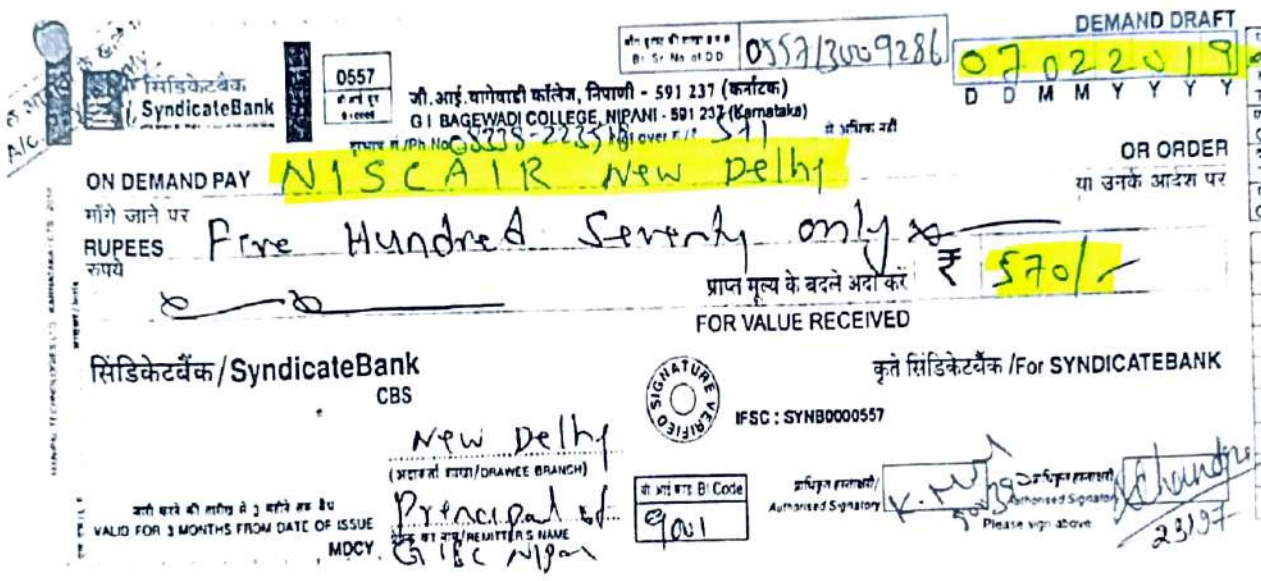 DEMAND DRAFT
Br. Sr. No. of DD 0557/3009286
07022019
D D M M Y Y Y Y
सिंडिकेटबैंक
SyndicateBank
0557
जी.आई.बागेवाडी कॉलेज, निपाणी - 591 237 (कर्नाटक)
G I BAGEWADI COLLEGE, NIPANI - 591 237 (Karnataka)
/Ph No 08338-223518 over 571 से अधिक नहीं
A/C
ON DEMAND PAY NISCAIR New Delhi OR ORDER
माँगे जाने पर या उनके आदेश पर
RUPEES Five Hundred Seventy only
रुपये
प्राप्त मूल्य के बदले अदा करें ₹ 570/-
FOR VALUE RECEIVED
सिंडिकेटबैंक/SyndicateBank
CBS
कृते सिंडिकेटबैंक /For SYNDICATEBANK
SIGNATURE VERIFIED
IFSC : SYNB0000557
New Delhi
(अदाकर्ता शाखा/DRAWEE BRANCH)
जारी करने की तारीख से 3 महीने तक वैध
VALID FOR 3 MONTHS FROM DATE OF ISSUE
MDCY
Principal of
REMITTER'S NAME
GIBC Nipani
Br Code
9001
प्राधिकृत हस्ताक्षरी/
Authorised Signatory
प्राधिकृत हस्ताक्षरी
Authorised Signatory
Please sign above
23197